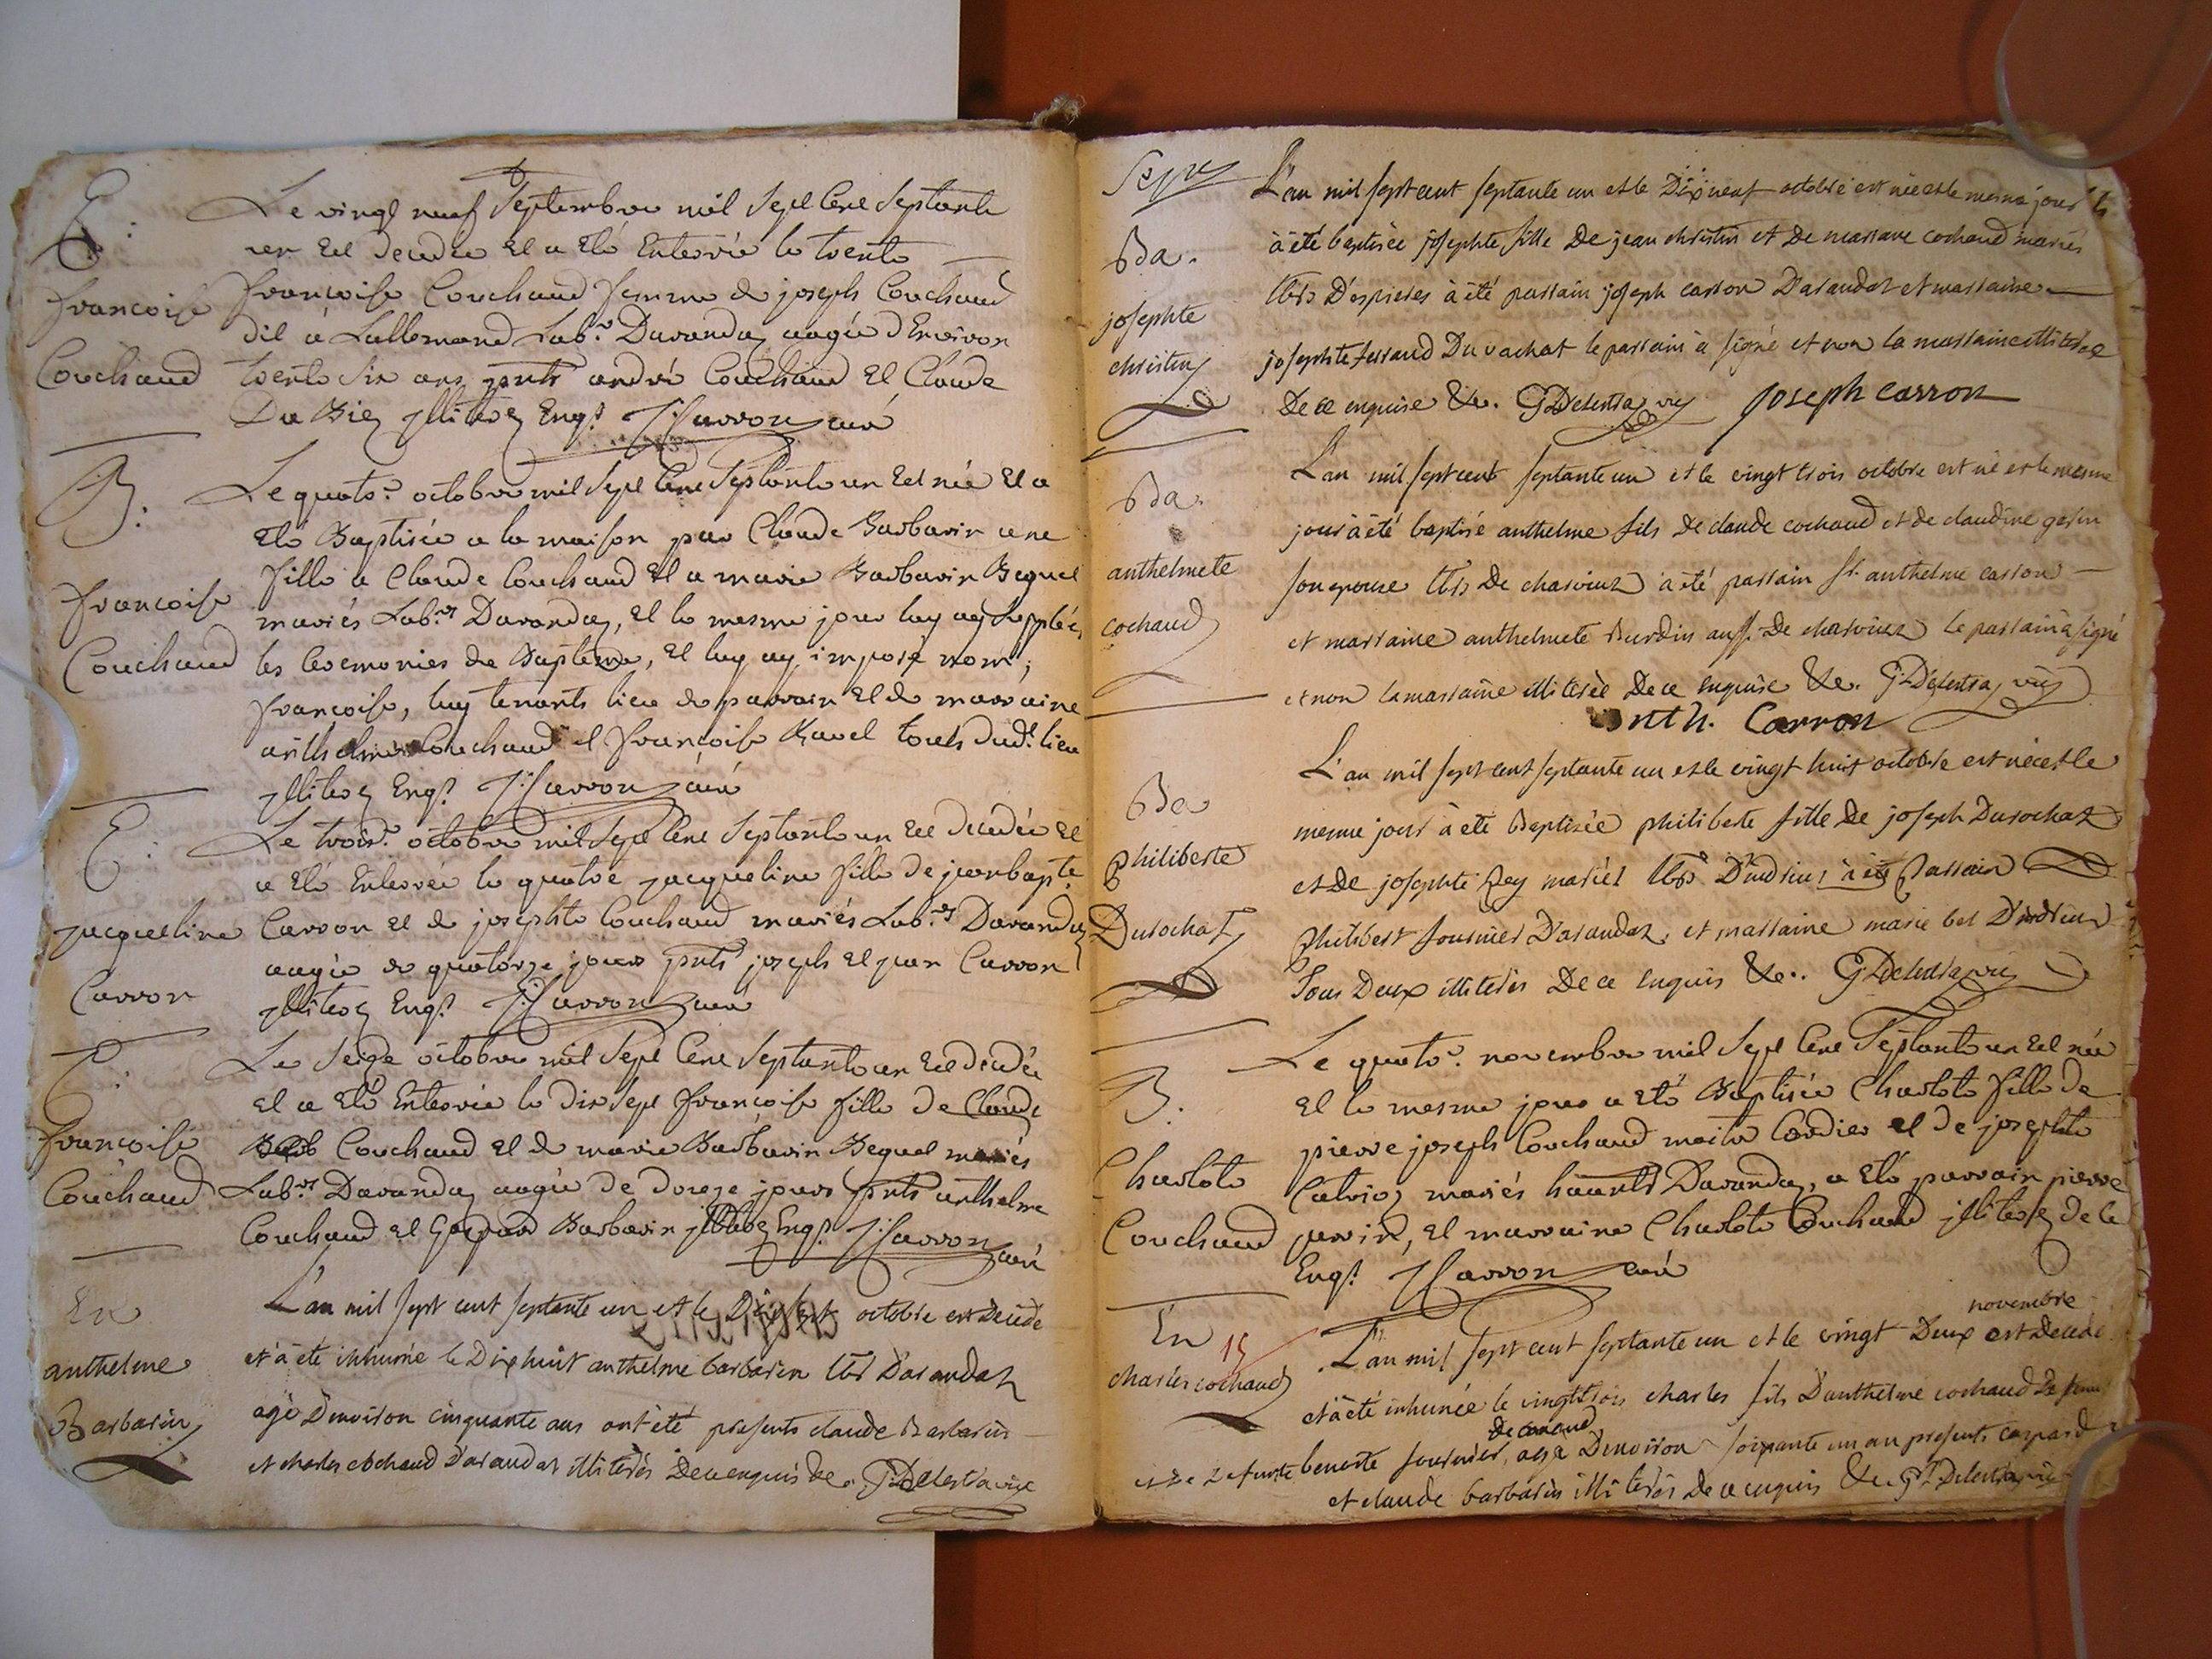 E:
françoise
Couchaud
Le vingt neuf Septembre mil Sept Cent Septante
un Est decedee Et a Eté Enterrée le trente
françoise Couchaud femme de joseph Couchaud
dit à Lallemand Lab.r Darandaz aagée d'Environ
trente six ans pnts andré Couchaud Et Claude
Du Biez jlliterez Enqs. Carron curé
B:
françoise
Couchaud
Le quato.e octobre mil Sept Cent Septante un Est née Et a
Eté Baptisée a la maison par Claude Barbarin une
fille a Claude Couchaud Et a marie Barbarin Bequet
mariés Lab.rs Darandaz, Et le mesme jour luy ay Supplée
les Ceremonies du Baptême, Et luy ay imposé nom,
françoise, luy tenants lieu de parrain Et de marraine
anthelme Couchaud et françoise Ravet touts dud.t lieu
jlliterez Enqs. Carron curé
E:
jacqueline
Carron
Le trois.e octobre mil Sept Cent Septante un Est decedée Et
a Eté Enterrée le quatre jacqueline fille de jean bapte
Carron Et de josephte Couchaud mariés Lab.rs Darandaz
aagée de quatorze jours pnts joseph Et jean Carron
jlliterez Enqs. Carron curé
E:
françoise
Couchaud
Le Seize octobre mil Sept Cent Septante un Est decedée
Et a Eté Enterrée le dix Sept françoise fille de Claude
Couchaud Et de marie Barbarin Bequet mariés
Lab.rs Darandaz aagée de douze jours pnts anthelme
Couchaud Et Gaspard Barbarin jlliterez Enqs. Carron
curé
En
anthelme
Barbarin
L'an mil sept cent septante un et le Dix sept octobre est Decedé
et à été inhumé le Dix huit anthelme barbarin lbr D'arandaz
agé D'environ cinquante ans ont été presents claude Barbarin
et charles cochaud D'arandaz illiterés De ce enquis &c. G Delestra vic
Sepre
Ba.
josephte
christin
L'an mil sept cent septante un et le Dix neuf octobre est née et le meme jour
à été baptisée josephte fille De jean christin et De marave cochaud mariés
lbrs D'espieres à été parrain joseph carron D'arandaz et marraine
josephte ferrand Du vachat le parrain à signé et non la marraine illiterée
De ce enquise &c. G Delestra vic Joseph Carron
Ba.
anthelmete
cochaud
L'an mil sept cent septante un et le vingt trois octobre est né et le mesme
jour à été baptisé anthelme fils De claude cochaud et de claudine gerin
son epouse lbrs De charvieux à été parrain sr. anthelme carron
et marraine anthelmete Burdin auss. De charvieux le parrain a signé
et non la marraine illiterée De ce enquise &c. G Delestra vic
Anth. Carron
Ba
Philiberte
Durochat
L'an mil sept cent septante un et le vingt huit octobre est née et le
meme jour à été Baptisée philiberte fille De joseph Durochat
et De josephte Rey mariés lbrs D'indrieux à été Parrain
Philibert fournier D'arandaz, et marraine marie bel D'indrieux
Tous Deux illiterés De ce enquis &c. G Delestra vic
B.
Charlote
Couchaud
Le quato.e novembre mil Sept Cent Septante un Est née
Et le mesme jour a Eté Baptisée Charlote fille de
pierre joseph Couchaud maitre Cordier et de josephte
Catrioz mariés haants Darandaz, a Eté parrain pierre
, Et marraine Charlote Couchaud jlliterez de ce
Enqs. Carron curé
En 15
charles cochaud
L'an mil sept cent septante un et le vingt Deux novembre est Decedé
et à été inhumée le vingt trois charles fils D'anthelme cochaud
et De Defunte benoite fournier, De conand agé D'environ soixante un an presents caspard
et claude barbarin illiterés De ce enquis &c. G Delestra vic